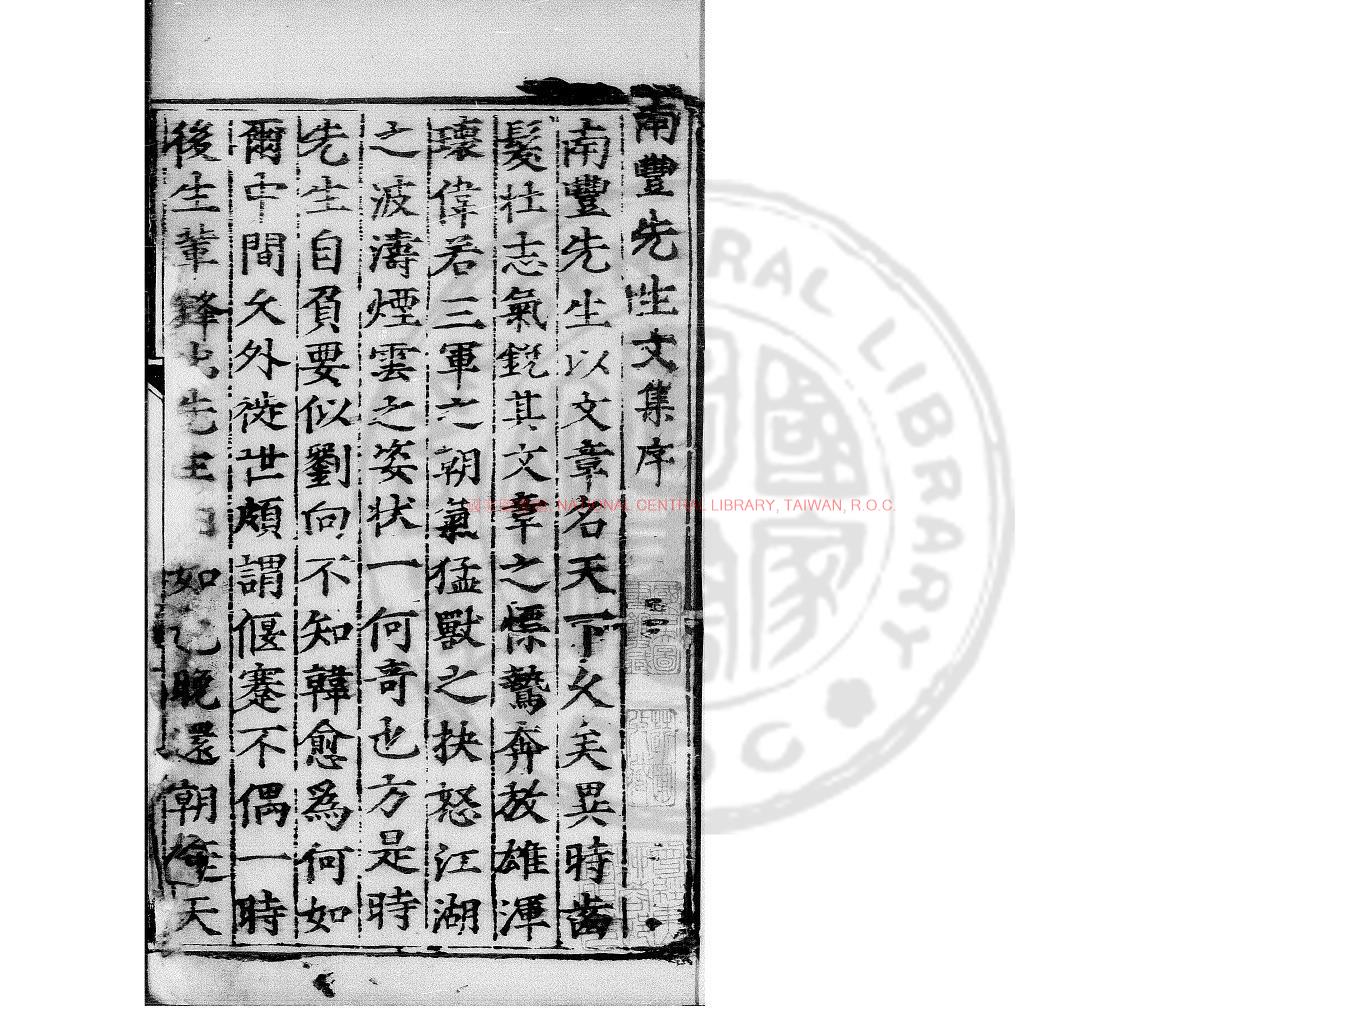 南豐先生文集序
南豐先生以文章名天下久矣異時齒
髮壯志氣銳其文章之慓鷙奔放雄渾
瓌偉若三軍之朝氣猛獸之抉怒江湖
之波濤煙雲之姿狀一何奇也方是時
先生自負要似劉向不知韓愈為何如
爾中間乆外徙世頗謂偃蹇不偶一時
後生輩鋒出先生 如也晚還朝 天
NATIONAL CENTRAL LIBRARY, TAIWAN, R.O.C.